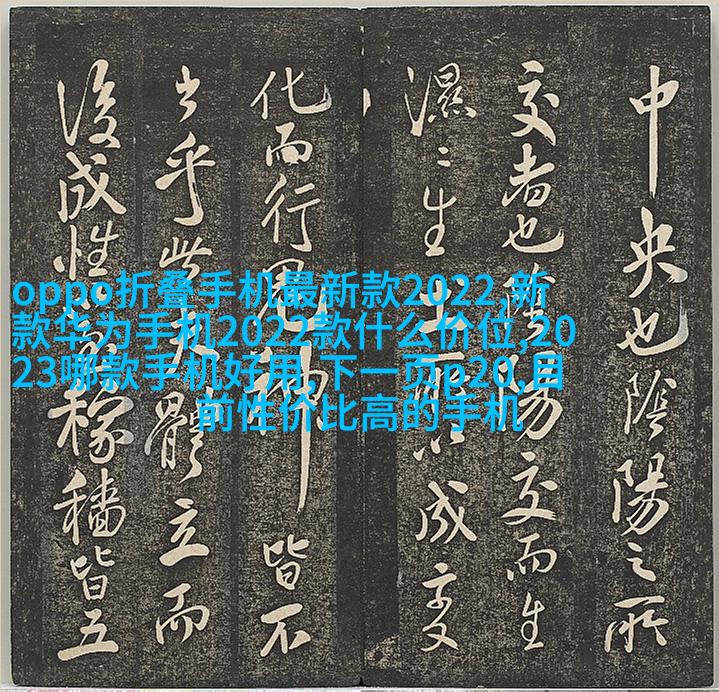 中央也陰陽之所
交者也陰陽交而生
濕〻生土所以成变
化而行鬼神皆不
乎此大體立而
後成性稼穡皆五
oppo折叠手机最新款2022,新
款华为手机2022款什么价位,20
23哪款手机好用,下一页p20,目
前性价比高的手机